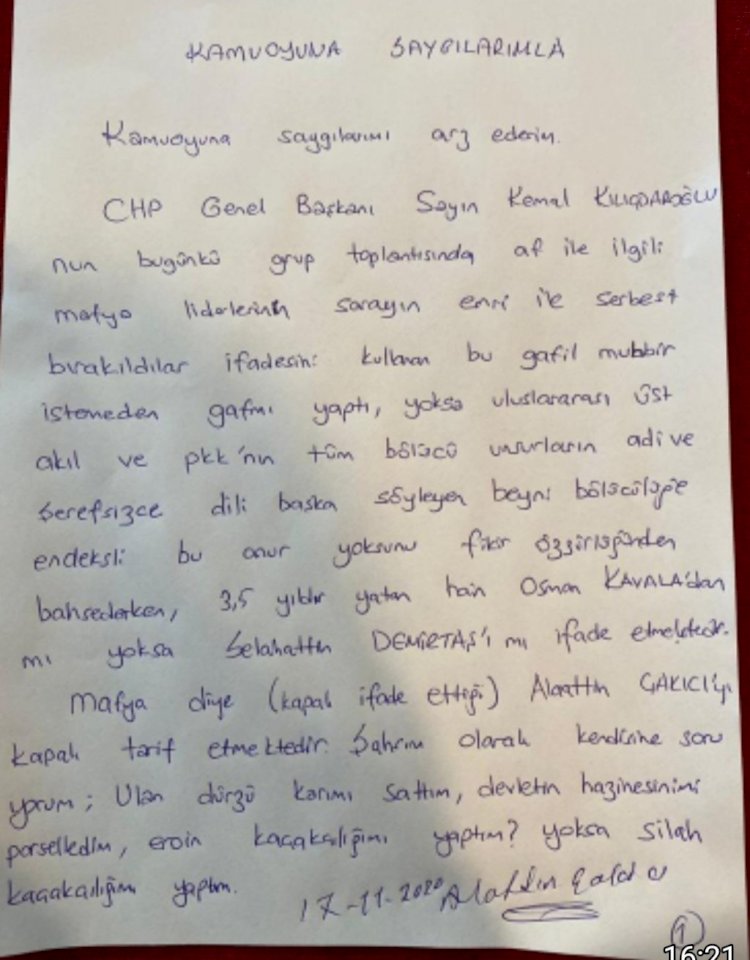 KAMUOYUNA SAYGILARIMLA
Kamuoyuna saygılarımı arz ederim.
CHP Genel Başkanı Sayın Kemal KILIÇDAROĞLU
nun bugünkü grup toplantısında af ile ilgili
mafya liderlerinin sarayın emri ile serbest
bırakıldılar ifadesini kullanan bu gafil muhbir
istemeden gafmı yaptı, yoksa uluslararası üst
akıl ve pkk'nın tüm bölücü unsurların adi ve
şerefsizce dili başka söyleyen beyni bölücülüğe
endeksli bu onur yoksunu fikir özgürlüğünden
bahsederken, 3,5 yıldır yatan hain Osman KAVALA'dan
mı yoksa Selahattin DEMİRTAŞ'ı mı ifade etmektedir.
Mafya diye (kapalı ifade ettiği) Alaattin ÇAKICI'yı
kapalı tarif etmektedir. Şahsım olarak kendisine soru
yorum; Ulan dürzü karımı sattım, devletin hazinesinimi
parselledim, eroin kaçakçılığımı yaptım? yoksa silah
kaçakçılığımı yaptım.
17-11-2020 Alattin Çakıcı
1
16:21